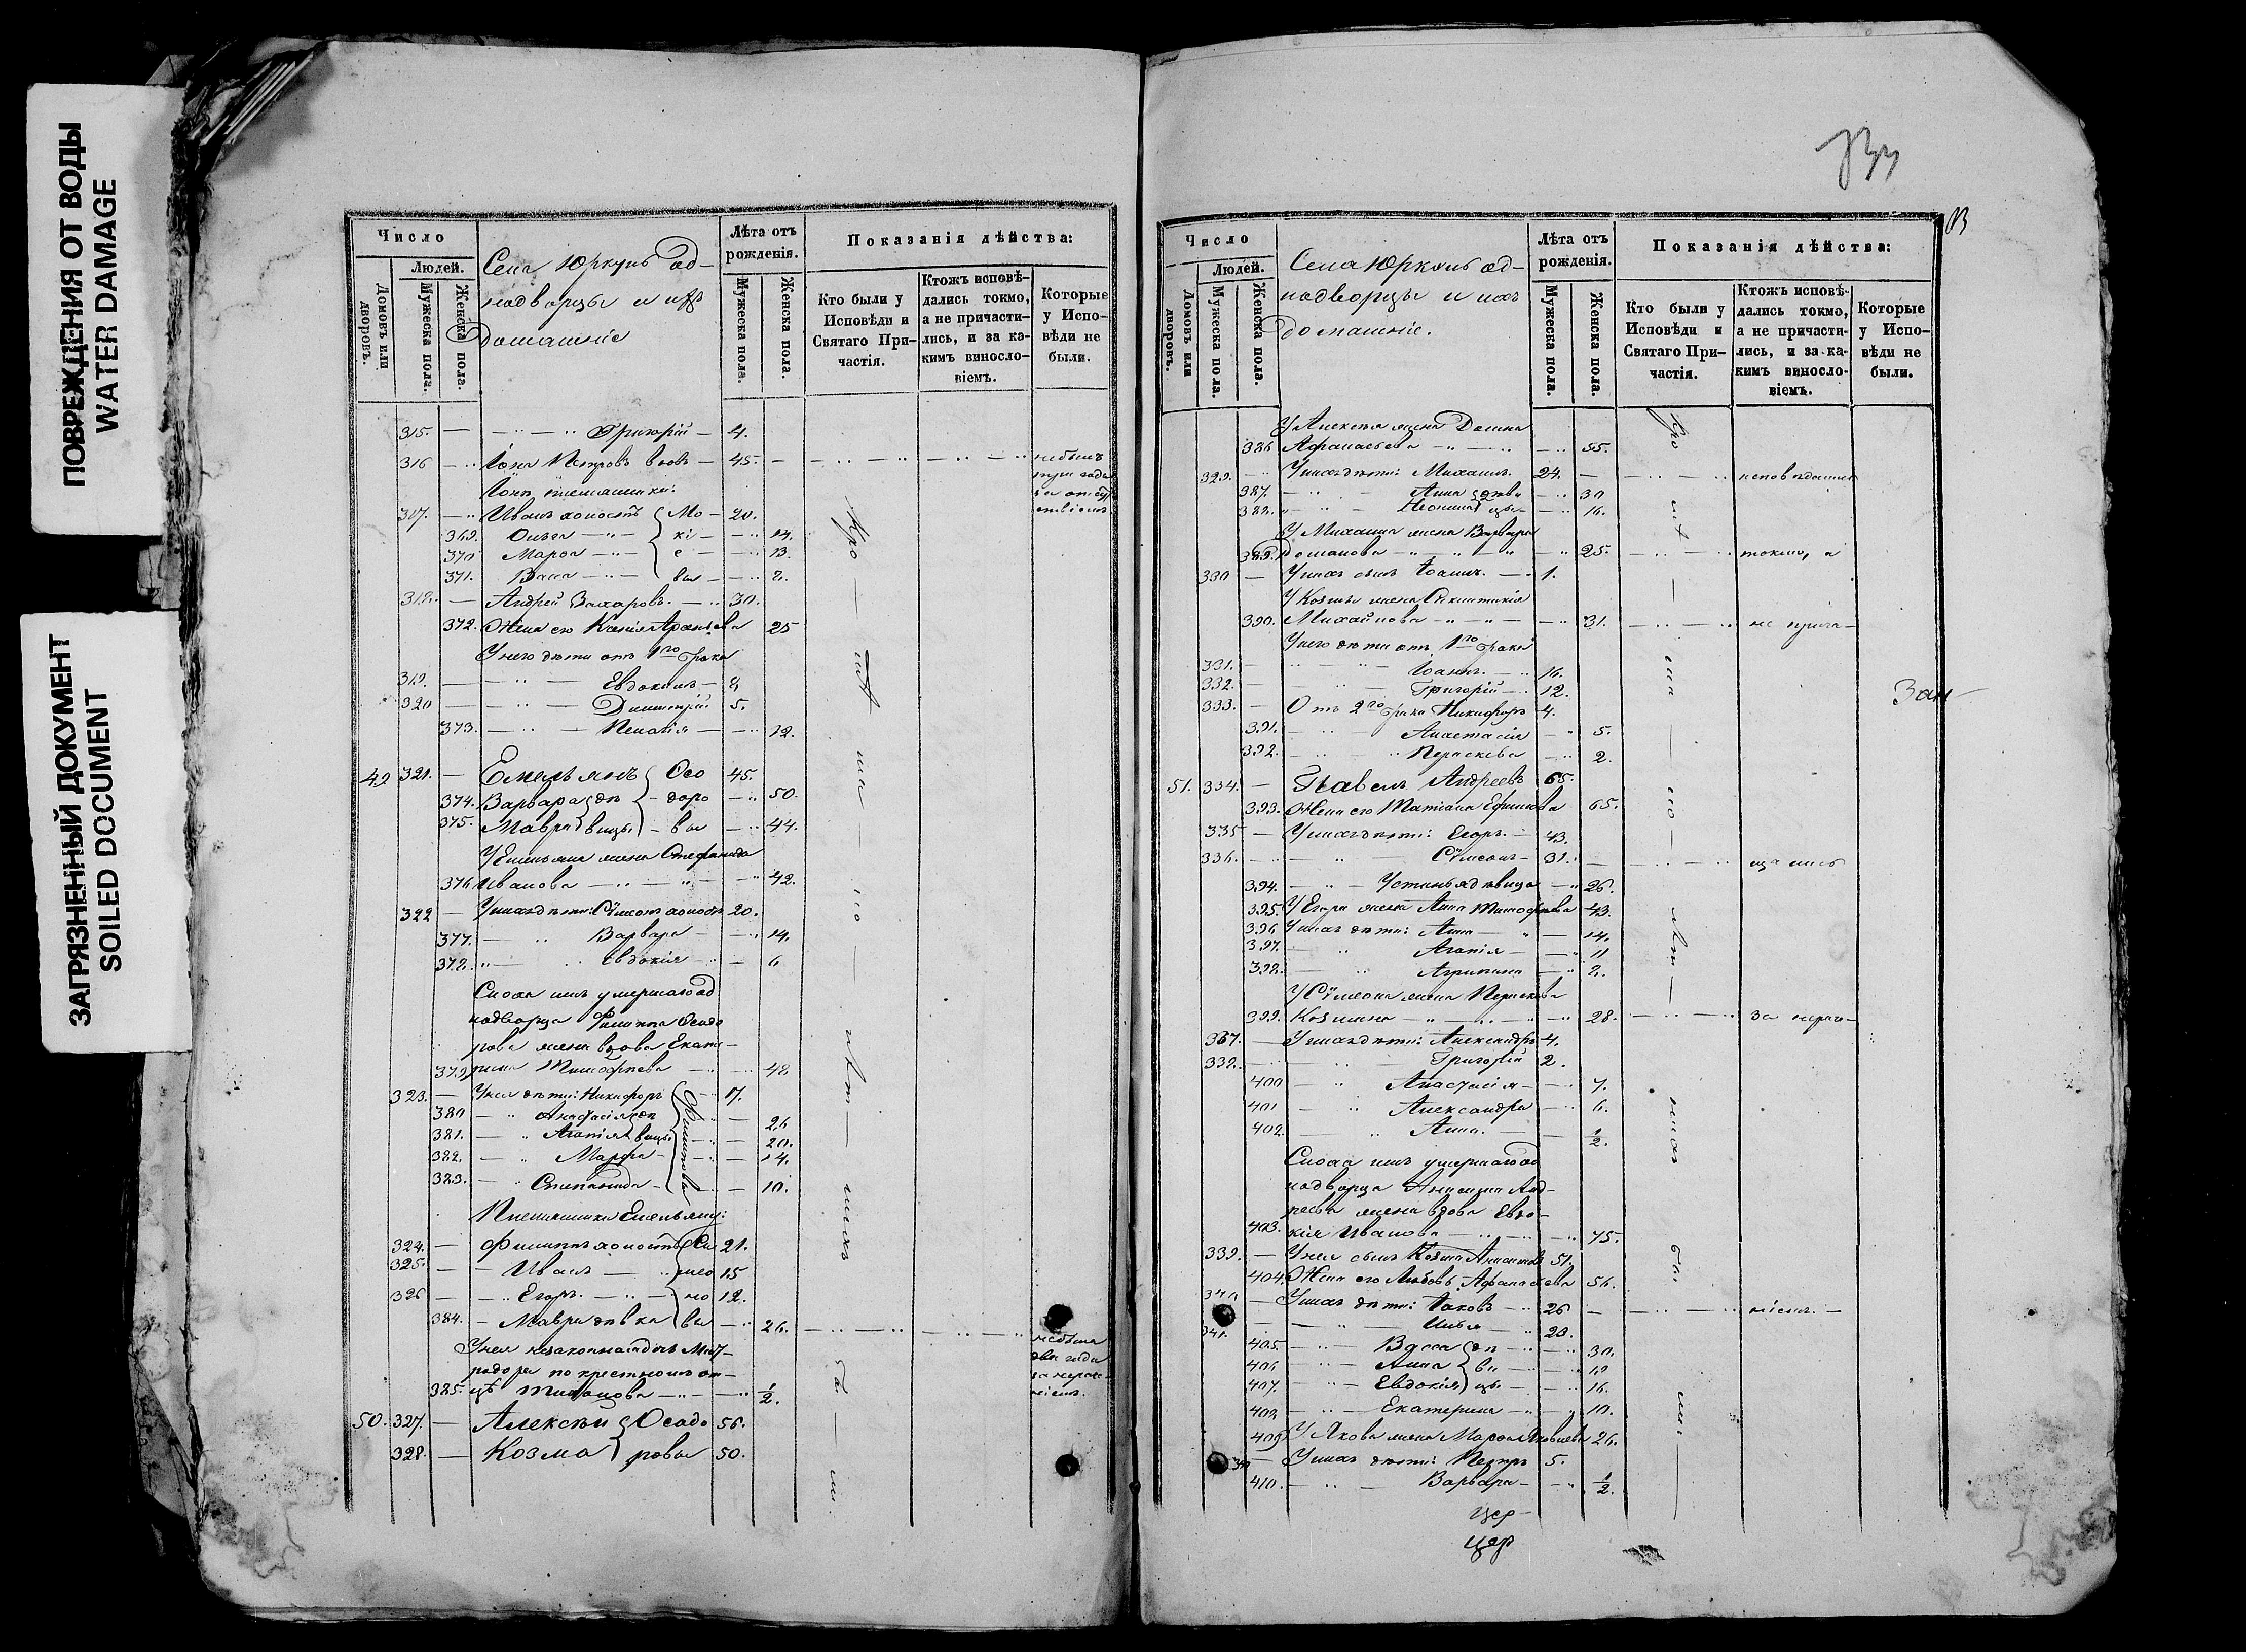 ПОВРЕЖДЕНИЯ ОТ ВОДЫ
WATER DAMAGE
ЗАГРЯЗНЕННЫЙ ДОКУМЕНТ
SOILED DOCUMENT
Число
Людей.
Домовъ или дворовъ.
Мужеска пола.
Женска пола.
Села Юркунъ од-
надворцы и ихъ
домашніе
Лѣта отъ рожденія.
Мужеска пола.
Женска пола.
Показанія дѣйства:
Кто были у Исповѣди и Святаго При-частія.
Ктожъ исповѣ-дались токмо, а не причасти-лись, и за ка-кимъ виносло-віемъ.
Которые у Испо-вѣди не были.
315. — Григорій — 4.
316 — Іона Петровъ вдовъ — 45. — небылъ
три года
Іоны племянники: за отсут
317. — Иванъ холостъ Мо — 20. ствіемъ
369. Ольга — кі — 14.
370 Марѳа — е — 13.
371. Васса — вы — 8.
318. — Андрей Захаровъ. — 30.
372. Жена его 25
У него дѣти отъ 1го брака
319. — Евдокимъ — 8.
320 — Димитрій 5.
373. — Пелагія — 12.
49 321. — Емельянъ Ѳео 45.
374. Варвара дѣ — доро — 50.
375. Мавра вицы — вы — 44.
У Емельяна жена Стефанида
376 Иванова — 42.
322 — У нихъ дѣти: Сѵмеонъ холостъ 20.
377. — Варвара — 14.
378. — Евдокія — 6
Сноха ихъ умершаго од
надворца Филиппа Ѳеодо
рова жена вдова Екате-
379 рина Тимофѣева — 48
323. — У нея дѣти: Никифоръ Филипповы 17.
380 — Анастасія дѣ — 26
381. — Агапія вицы — 20.
382. — Марѳа — 14.
383. — Степанида — 10.
Племянники Емельяну:
324. — Филиппъ холостъ Си 21.
325. — Иванъ — мео 15
326 — Егоръ. — но 12.
384. — Мавра дѣвка вы — 26. — небыла
У нея незаконнаядочь Мит- два года
родора по крестномъ от- за нераде-
385. цѣ Тихонова — 1/2. ніемъ.
50. 327. — Алексѣй Ѳеодо 56.
328. — Козма ровы 50.
Число
Людей.
Домовъ или дворовъ.
Мужеска пола.
Женска пола.
Села Юркунъ од-
надворцы и ихъ
домашніе.
Лѣта отъ рожденія.
Мужеска пола.
Женска пола.
Показанія дѣйства:
Кто были у Исповѣди и Святаго При-частія.
Ктожъ исповѣ-дались токмо, а не причасти-лись, и за ка-кимъ винословіемъ.
Которые у Испо-вѣди не были.
У Алексѣя жена Домна
386 Афанасьева — 55.
329. — У нихъ дѣти: Михаилъ. 24. — исповѣдались
387. — Анна дѣви — 30
388. — цы — 16.
У Михаила жена Варвара
389. Романова — 25. — токмо, а
330 — У нихъ сынъ Іоаннъ. — 1.
У Козмы жена
390. Михайлова — 31. — не прича-
У него дѣти отъ 1го брака
331. — Іоаннъ. — 16.
332. — Григорій — 12.
333. — Отъ 2го брака Никифоръ 4.
391. — Анастасія — 5.
392. — Параскева — 2.
51. 334. — Павелъ Андреевъ 65.
393. Жена его Татіана Ефимова 65.
335 — У нихъ дѣти: Егоръ. — 43.
336. — Сѵмеонъ — 31. — щались
394. — Устинья дѣвица — 26.
395. У Егора жена Анна Тимофѣева 43.
396 У нихъ дѣти: Анна — 14.
397. — Агапія — 11
398. — Агрипина — 8.
У Сѵмеона жена Параскева
399. Козмина — 28. — за нераде-
337. — У нихъ дѣти: Александръ 4.
338. — Григорій 2.
400 — Анастасія — 7.
401 — Александра — 6.
402. — Анна. — 1/2.
Сноха ихъ умершаго од
надворца Анисима Анд-
реева жена вдова Евдо-
403. кія Иванова — 75.
339. — У нея сынъ Козма Анисимовъ 51.
404. Жена его Любовь Афанасьева 56.
340 — У нихъ дѣти: Іаковъ — 26 — ніемъ. —
341. — Илья — 20.
405. — Васса дѣ — 30.
406 — Анна ви — 19
407. — Евдокія цы — 16.
408 — Екатерина — 10.
409 У Якова жена Марѳа Яковлева 26.
342 — У нихъ дѣти: Петръ 5.
410. — Варвара — 1/2.
цер-
цер